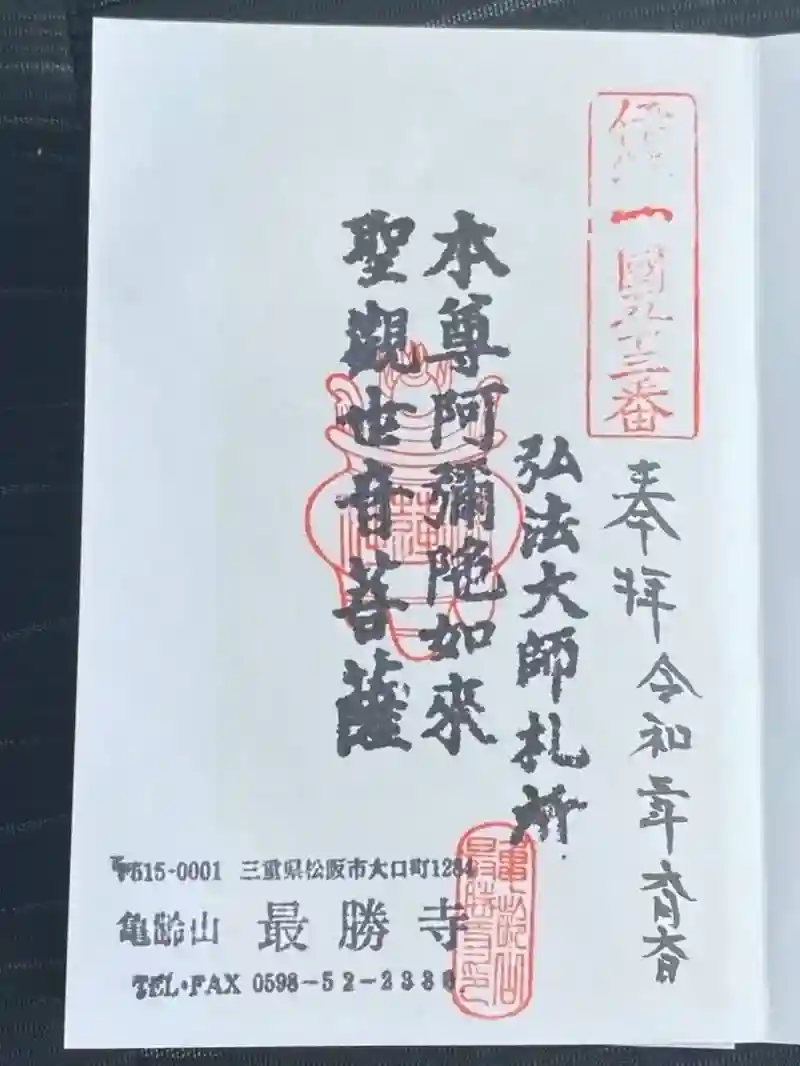 國五十三番
奉拝 令和
弘法大師札所
本尊阿彌陀如来
聖觀世音菩薩
〒515-0001 三重県松阪市大口町1284
亀齢山 最勝寺
TEL・FAX 0598-52-2330
亀齢山
最勝寺印